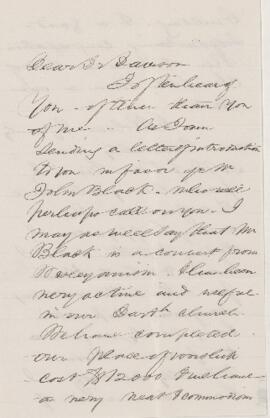 Dear Dr Dawson
I often hear of
you - oftener than you
of me. - As I am
sending a letter of introduction
to you in favor of Mr
John Black - who will
perhaps call on you. I
may as well say that Mr
Black is a convert from
He has been
very active and useful
in our church
We have completed
our place of worship
cost $12000 & we have
a very neat & commodious